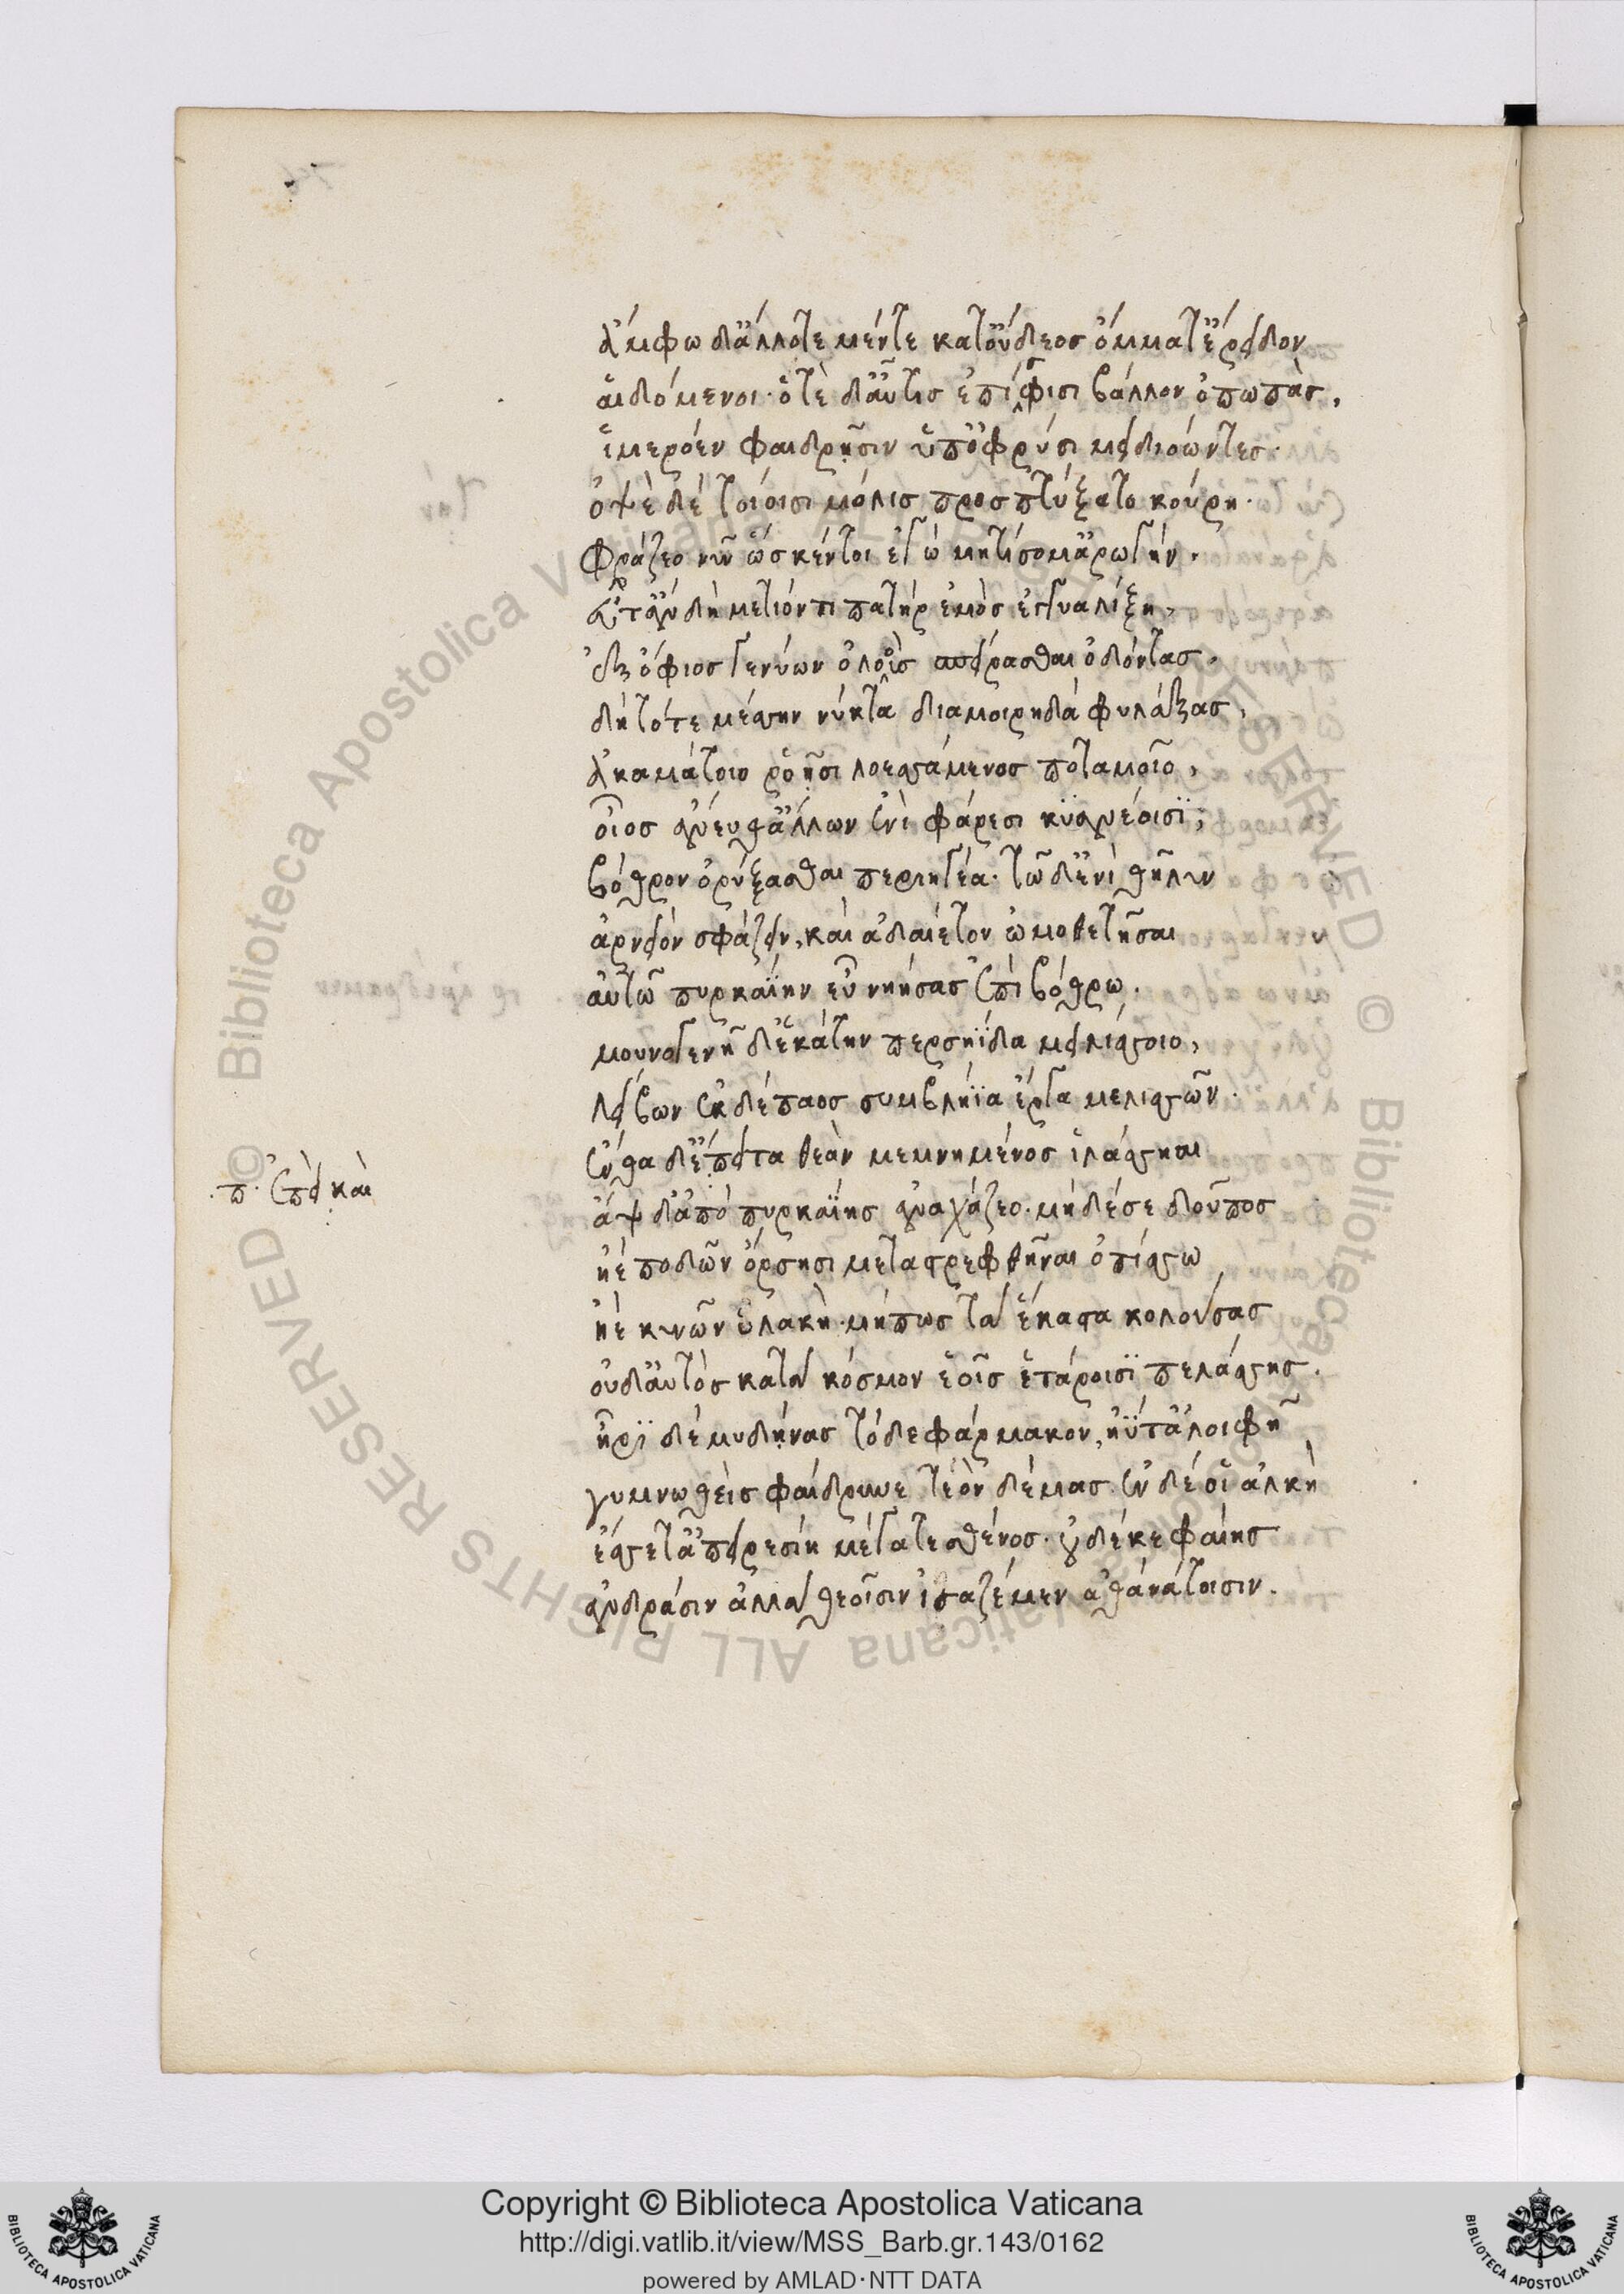 ἄμφω δ' ἄλλοτε μέν τε κατ' οὔδεος ὄμματ' ἔρειδον
αἰδόμενοι· ὁτὲ δ' αὖτις ἐπὶ σφίσι βάλλον ὀπωπὰς,
ἱμερόεν φαιδρῇσιν ὑπ' ὀφρύσι μειδιόωντες·
ὀψὲ δὲ τοίοισι μόλις προσπτύξατο κούρη·
φράζεο νῦν ὥς κέν τοι ἐγὼ μητίσομ' ἀρωγήν.
εὖτ' ἂν δὴ μετιόντι πατὴρ ἐμὸς ἐγγυαλίξῃ,
ἐξ ὄφιος γενύων ὀλοοὺς σπείρασθαι ὀδόντας,
δὴ τότε μέσσην νύκτα διαμοιρηδὰ φυλάξας,
ἀκαμάτοιο ῥοῇσι λοεσσάμενος ποταμοῖο,
οἶος ἄνευθ' ἄλλων ἐνὶ φάρεσι κυανέοισι,
βόθρον ὀρύξασθαι περιηγέα· τῷ δ' ἔνι θῆλυν
ἀρνειὸν σφάζειν, καὶ ἀδαίετον ὠμοθετῆσαι
αὐτῷ πυρκαϊὴν εὖ νηήσας ἐπὶ βόθρῳ.
μουνογενῆ δ' ἑκάτην περσηΐδα μειλίσσοιο,
λείβων ἐκ δέπαος σιμβλήϊα ἔργα μελισσῶν.
ἔνθα δ' ἔπειτα θεὰν μεμνημένος ἱλάσσηαι
.π. ἐπεὶ και
ἂψ δ' ἀπὸ πυρκαϊῆς ἀναχάζεο· μηδέ σε δοῦπος
ἠὲ ποδῶν ὄρσῃσι μεταστρεφθῆναι ὀπίσσω
ἠὲ κυνῶν ὑλακὴ· μή πως τὰ ἕκαστα κολούσας
οὐδ' αὐτὸς κατὰ κόσμον ἑοῖς ἑτάροισι πελάσσῃς.
ἦρι δὲ μυδήνας τόδε φάρμακον, ἠΰτ' ἀλοιφῇ
γυμνωθεὶς φαίδρυνε τεὸν δέμας. ἐν δέ οἱ ἀλκὴ
ἔσσετ' ἀπειρεσίη μέγα τε σθένος· οὐδέ κε φαίης
ἀνδράσιν ἀλλὰ θεοῖσιν ἰσαζέμεν ἀθανάτοισιν.
Copyright © Biblioteca Apostolica Vaticana
http://digi.vatlib.it/view/MSS_Barb.gr.143/0162
powered by AMLAD·NTT DATA